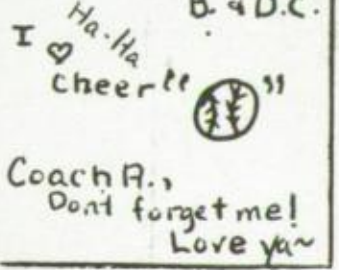 B. & D.C.
Ha-Ha
I ♡
cheer " "
Coach A.,
Dont forget me!
Love ya~